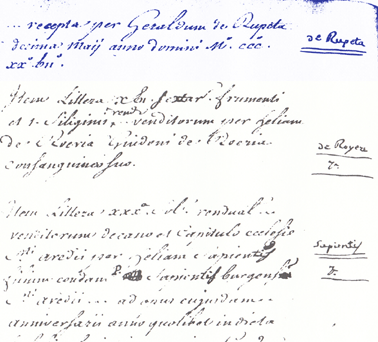 ... recepta per Geraldum de Rupeta
decima maij anno domini M° ccc°
xx° bn°.
de Rupeta
Item Littera x bn sextar frumenti
et 1. siliginis rend venditorum per heliam
de Roeria Guidoni de Roeria
consanguineo suo.
de Royere
Item Littera xxx.a
venditorum decano et Capitulo ecclesie
Sti aredii per heliam sapientis
filium condam P. Sapientis burgens
Sti aredii ... ad opus cujusdam
anniversarii anno quolibet in dicta
Sapientis